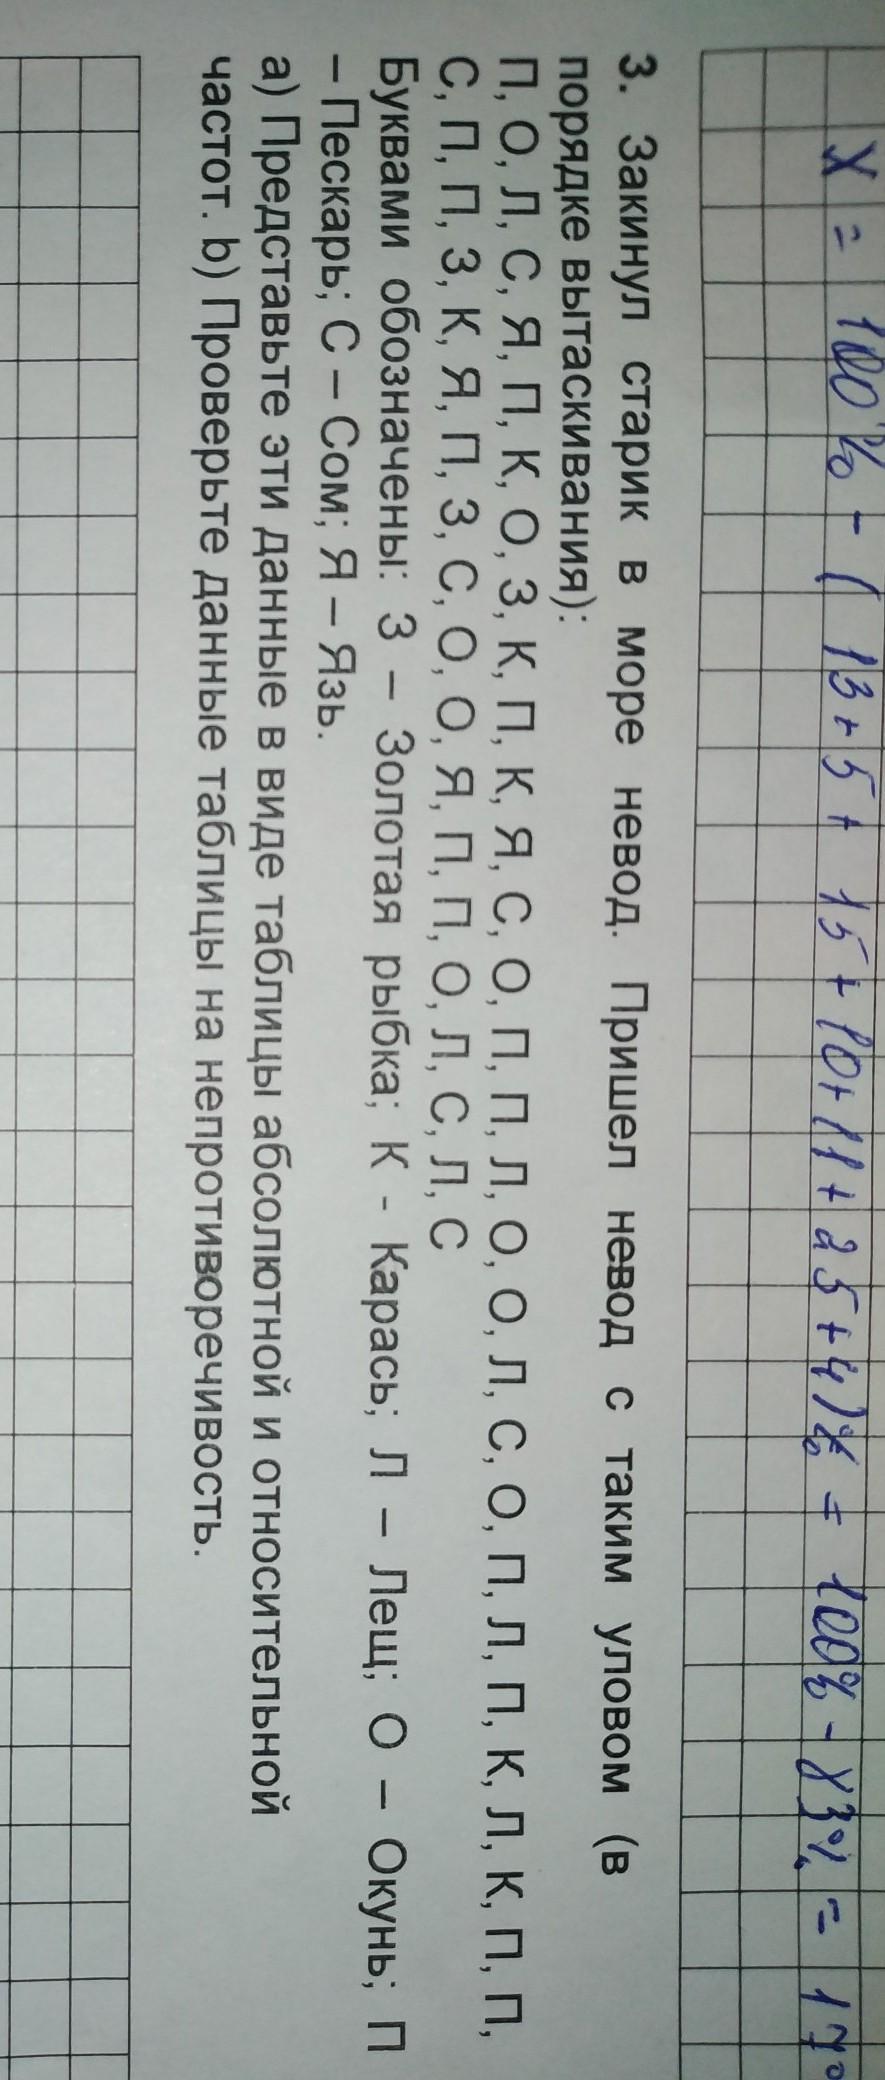 X = 100% - (13+5+15+10+11+25+4)% = 100% - 83% = 17%
3. Закинул старик в море невод. Пришел невод с таким уловом (в
порядке вытаскивания):
П, О, Л, С, Я, П, К, О, З, К, П, К, Я, С, О, П, П, Л, О, О, Л, С, О, П, Л, П, К, Л, К, П, П,
С, П, П, З, К, Я, П, З, С, О, О, Я, П, П, О, Л, С, Л, С
Буквами обозначены: З – Золотая рыбка; К - Карась; Л – Лещ; О – Окунь; П
– Пескарь; С – Сом; Я – Язь.
a) Представьте эти данные в виде таблицы абсолютной и относительной
частот. b) Проверьте данные таблицы на непротиворечивость.